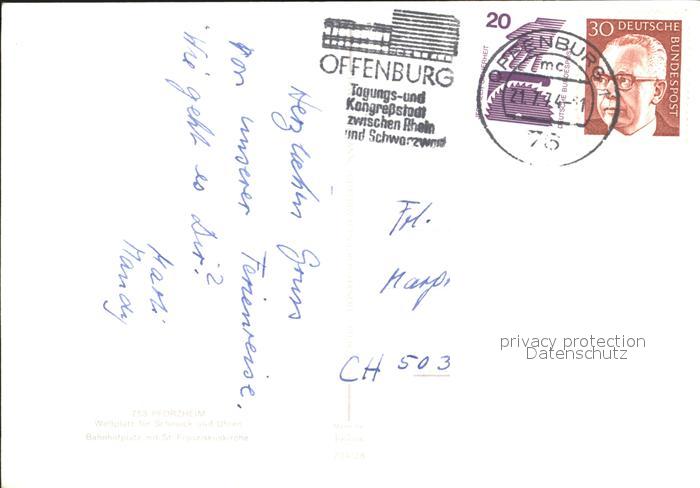 OFFENBURG
Tagungs-und
Kongreßstadt
zwischen Rhein
und Schwarzwald
20
DEUTSCHE BUNDESPOST
OFFENBURG
mc
21.7.74
76
30 DEUTSCHE
BUNDESPOST
Herzlichen Gruss
von unserer Ferienreise.
Wie geht es Dir?
Mandy
Frl.
CH 503
privacy protection
Datenschutz
753 PFORZHEIM
Weltplatz für Schmuck und Uhren
Bahnhofplatz mit St. Franziskuskirche